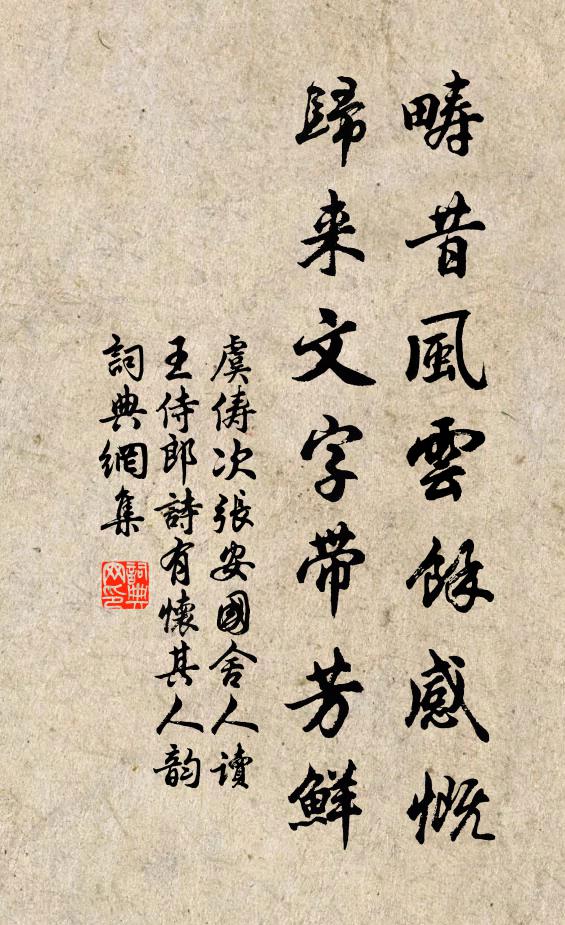 疇昔風雲餘感慨
歸来文字帶芳鮮
虞儔次張安國舍人讀
王侍郎詩有懷其人韵
詞典網集
詞典网印